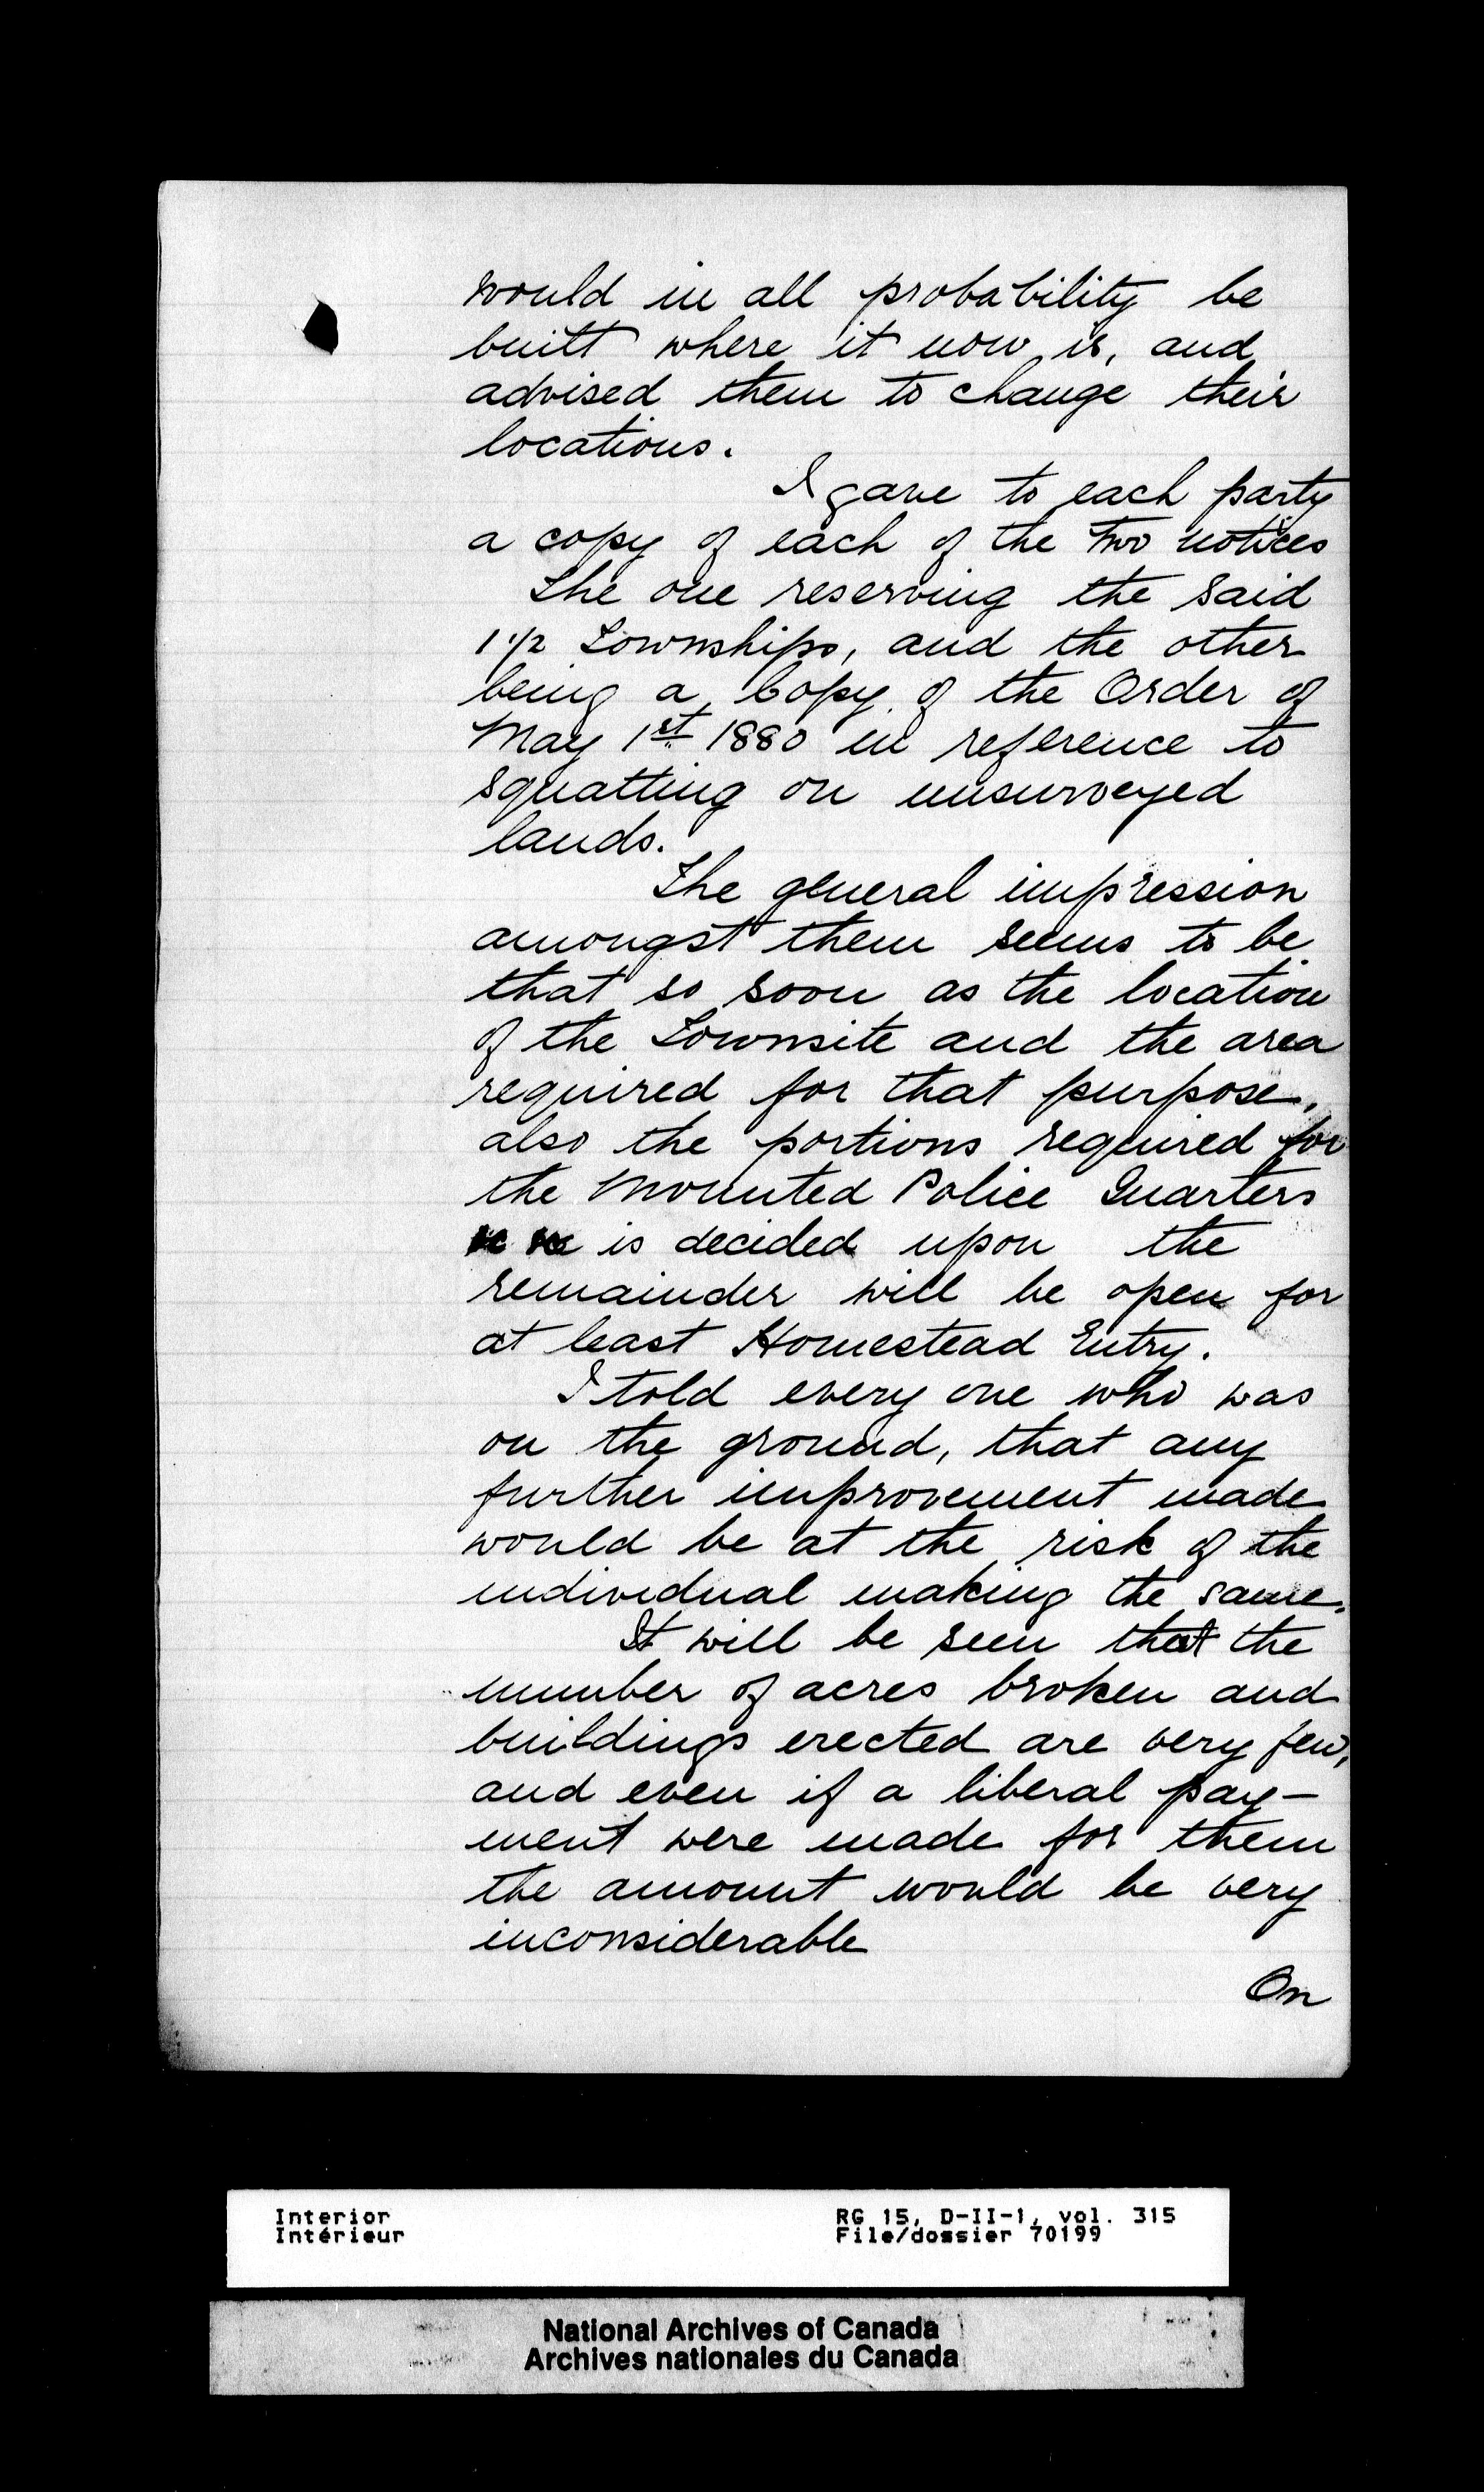 would in all probability be
built where it now is, and
advised them to change their
locations.
I gave to each party
a copy of each of the two notices
The one reserving the said
1 1/2 Townships, and the other
being a Copy of the Order of
May 1st 1880 in reference to
squatting on unsurveyed
lands.
The general impression
amongst them seems to be
that so soon as the location
of the Townsite and the area
required for that purpose,
also the portions required for
the Mounted Police Quarters
is decided upon the
remainder will be open for
at least Homestead Entry.
I told every one who was
on the ground, that any
further improvement made
would be at the risk of the
individual making the same.
It will be seen that the
number of acres broken and
buildings erected are very few,
and even if a liberal pay-
ment were made for them
the amount would be very
inconsiderable
On
Interior
Intérieur
RG 15, D-II-1, vol. 315
File/dossier 70199
National Archives of Canada
Archives nationales du Canada